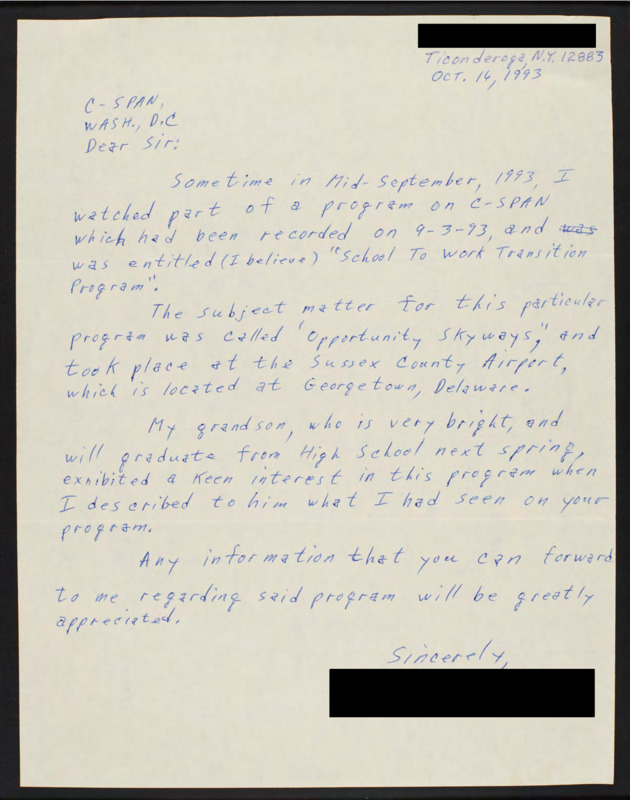 Ticonderoga, N.Y. 12883
OCT. 16, 1993
C-SPAN,
WASH., D.C
Dear Sir:
Sometime in Mid-September, 1993, I
watched part of a program on C-SPAN
which had been recorded on 9-3-93, and was
was entitled (I believe) "School To Work Transition
Program".
The subject matter for this particular
program was called "Opportunity Skyways", and
took place at the Sussex County Airport,
which is located at Georgetown, Delaware.
My grandson, who is very bright, and
will graduate from High School next spring,
exhibited a keen interest in this program when
I described to him what I had seen on your
program.
Any information that you can forward
to me regarding said program will be greatly
appreciated.
Sincerely,